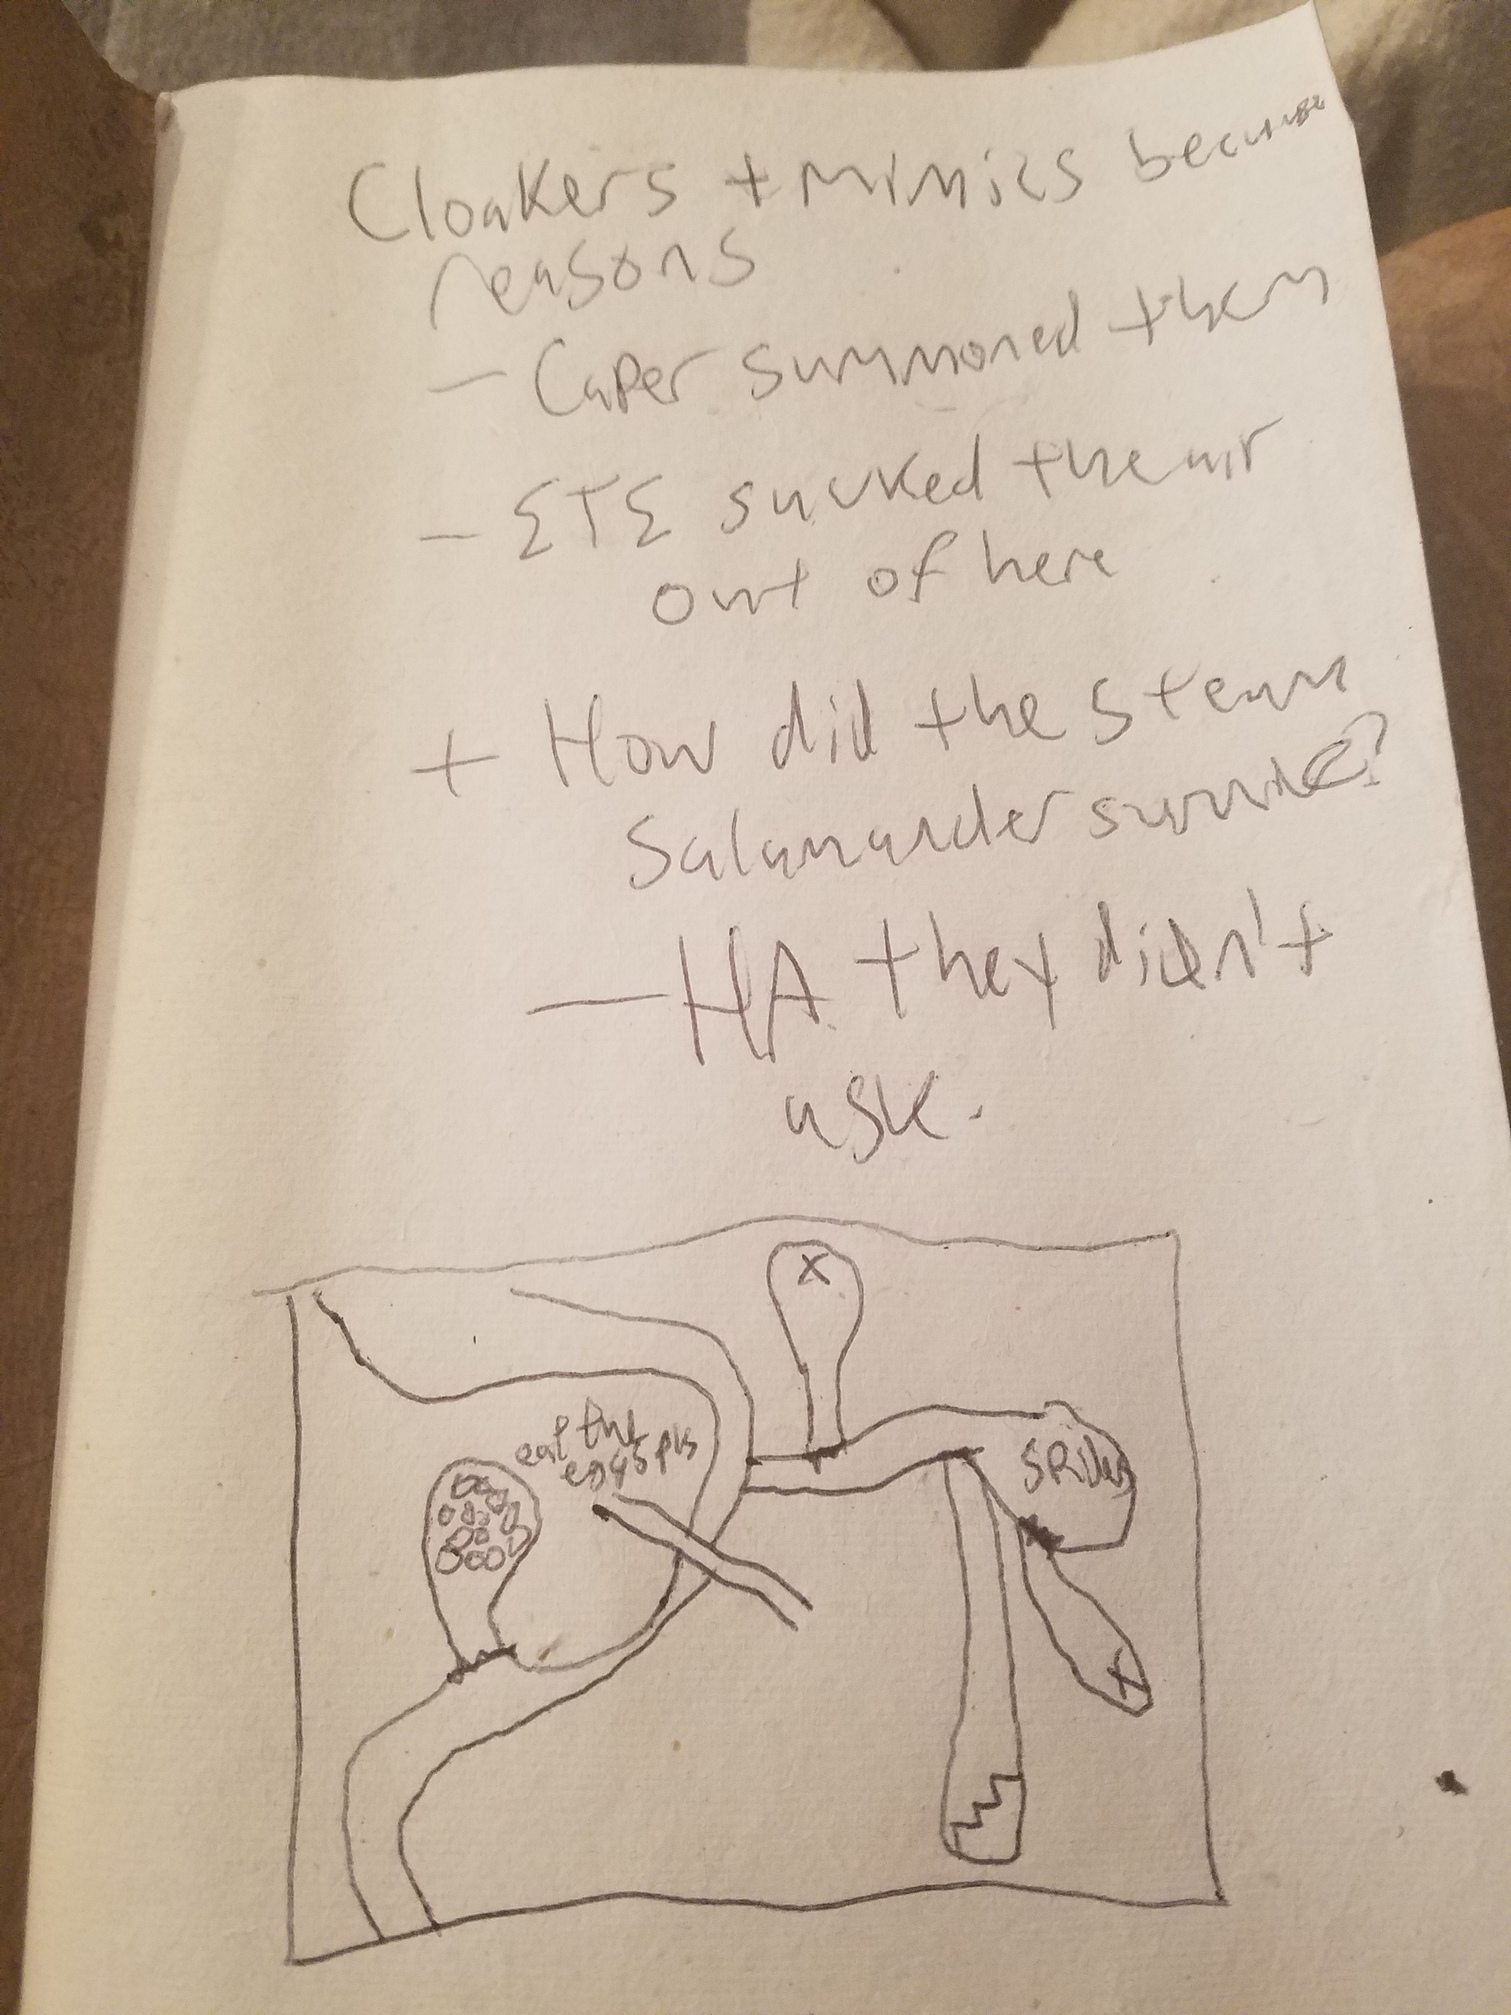 Cloakers + mimics because
reasons
- Caper summoned them
- ETE sucked the air
out of here
+ How did the steam
Salamander survive?
- HA they didn't
ask.
X
eat the
eggs pls
X